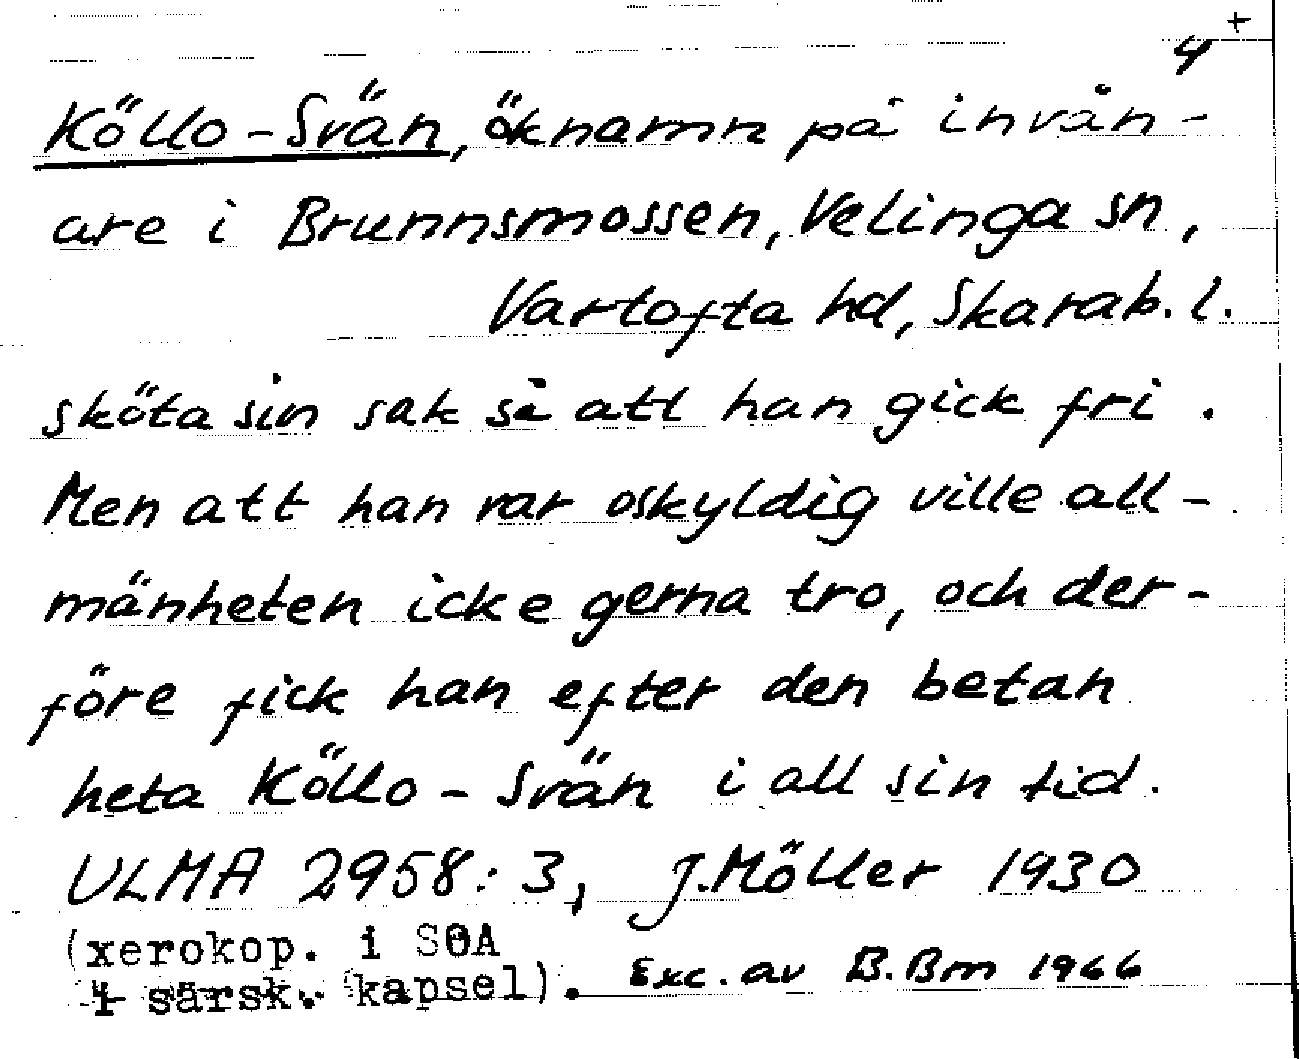 4 +
Köllo-Svän, öknamn på invån-
are i Brunnsmossen, Velinga sn,
Vartofta hd, Skarab. l.
sköta sin sak så att han gick fri.
Men att han var oskyldig ville all-
mänheten icke gerna tro, och der-
före fick han efter den betan
heta Köllo-Svän i all sin tid.
ULMA 2958:3, J. Möller 1930
(xerokop. i SOA
i särsk. kapsel). Exc. av B. Bm 1966